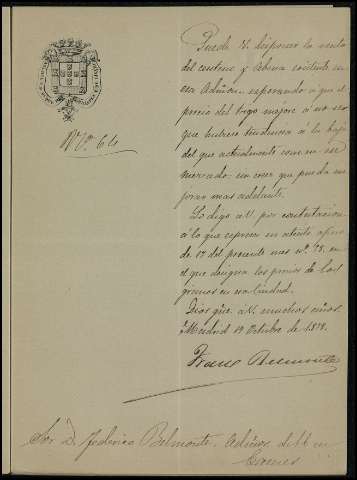 Puede V. disponer la venta
del centeno y Abena existente en
esa Admon. esperando á que el
precio del trigo mejore á no ser
que hubiere tendencia á la baja
del que actualmente corre en ese
mercado sin creer que pueda me
jorar mas adelante.
Lo digo a V. por contestacion
á lo que expresa en atento oficio
de 17 del presente mes nº. 78. en
el que designa los precios de los
granos en esa Ciudad.
Dios gûe. á V. muchos años.
Madrid 19 Octubre de 1878.
Franco
Nº. Oº. 64
Sor. D. Federico Belmonte. Admor. de